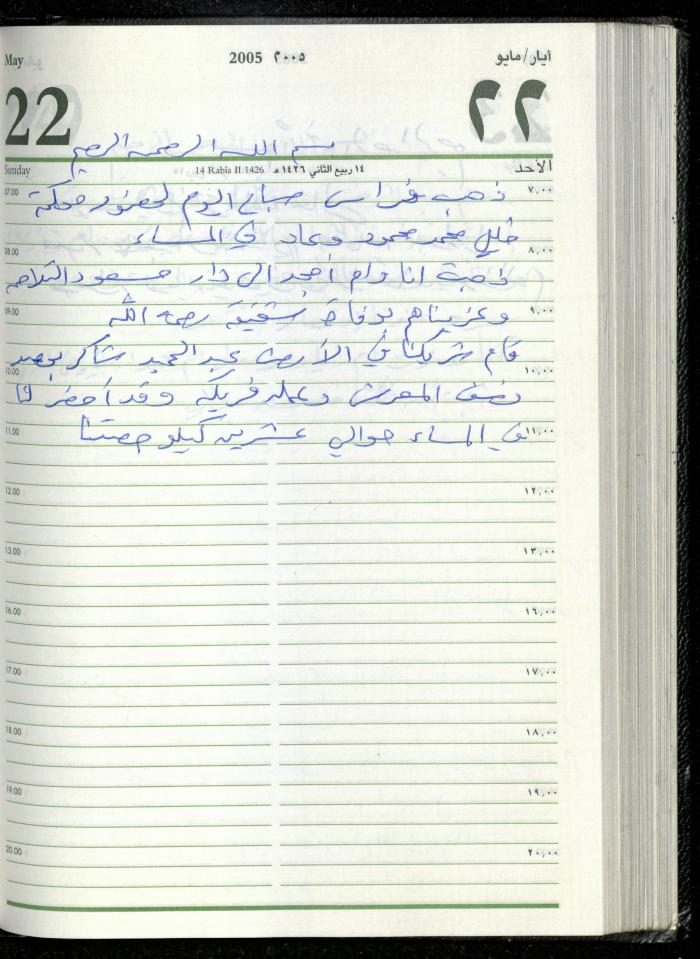 May 2005 ٢٠٠٥ أيار/مايو
22 ٢٢
بسم الله الرحمن الرحيم
Sunday 14 Rabia II 1426 ١٤ ربيع الثاني ١٤٢٦ هـ الأحد
07.00 ذهب فراس صباح اليوم لحضور محكمة ٧,٠٠
خليل محمد محمود وعاد في المساء
08.00 ٨,٠٠
ذهبت انا وام أمجد الى دار مسعود
09.00 وعزيناهم بوفاة شقيقة رحمه الله ٩,٠٠
قام شريكنا في الأرض عبد الحميد شاكر بحصد
10.00 ١٠,٠٠
نصف المعرش وعمله فريكه وقد أحضر لنا
11.00 في المساء حوالي عشرين كيلو حصتنا ١١,٠٠
12.00 ١٢,٠٠
13.00 ١٣,٠٠
16.00 ١٦,٠٠
17.00 ١٧,٠٠
18.00 ١٨,٠٠
19.00 ١٩,٠٠
20.00 ٢٠,٠٠